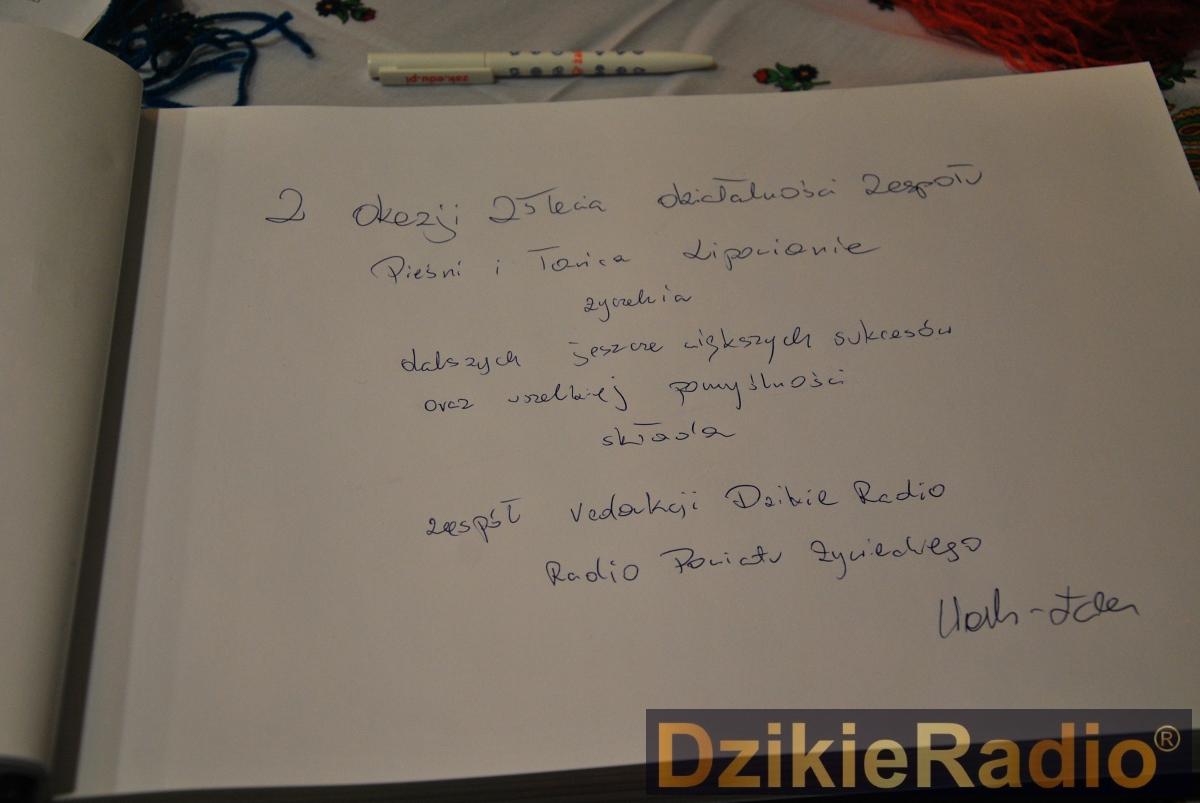 zak.edu.pl
Z okazji 25lecia działalności Zespołu
Pieśni i Tańca Lipowianie
życzenia
dalszych jeszcze większych sukcesów
oraz wszelkiej pomyślności
składa
zespół redakcji Dzikie Radio
Radio Powiatu Żywieckiego
DzikieRadio®